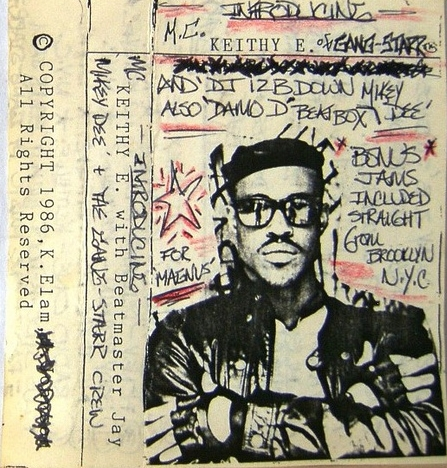 INTRODUCING
M.C.
KEITHY E. of GANG-STARR
AND DJ 12 B DOWN MIKEY
ALSO "DAMO D" BEATBOX DEE'
BONUS
JAMS
INCLUDED
STRAIGHT
from
BROOKLYN
N.Y.C
FOR
MAGNUS
MC INTRODUCING
KEITHY E. with Beatmaster Jay
MIKEY DEE' + THE GANG STARR CREW
© COPYRIGHT 1986, K. Elam
All Rights Reserved